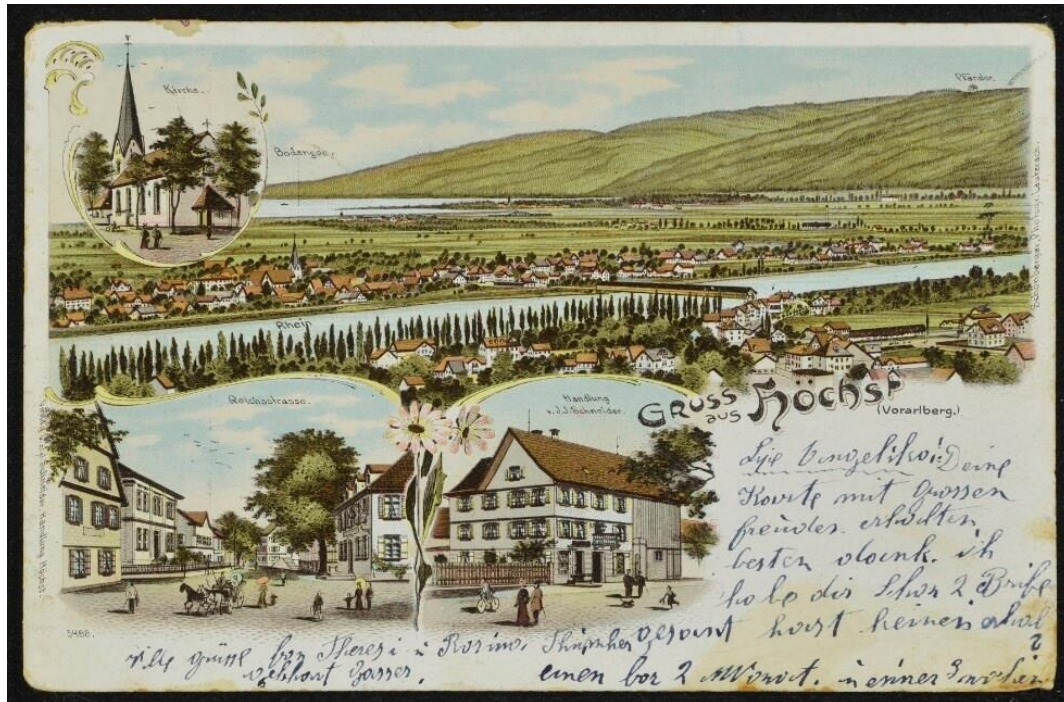 Kirche.
Bodensee.
Pfänder.
Rhein
Reichsstrasse.
Handlung
v. J. J. Schneider.
Gruss
aus Höchst
(Vorarlberg.)
5468.
Deine
Karte mit grossen
freuden erhalten
besten dank. ich
habe dir schon 2 Brife
gesant hast keinen erhal
?
einen vor 2 Monat. u einer 3
vile grüsse von Theresi u Rosina
Gebhart Gasser.